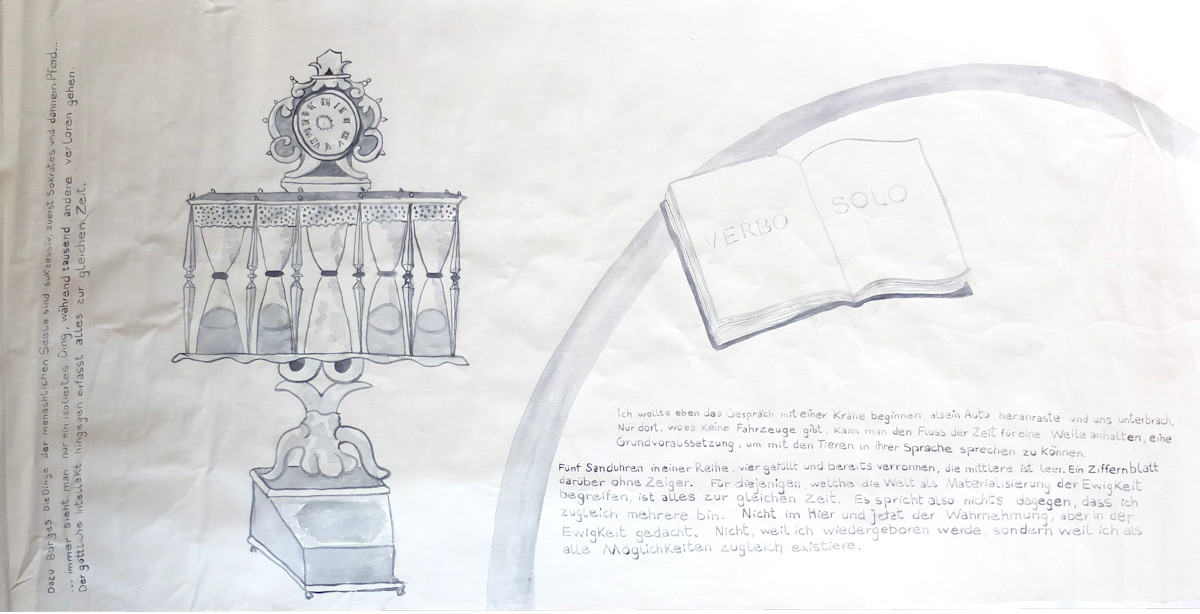 Dazu Borges Die Dinge der menschlichen Seele sind sukzessiv, zuerst Sokrates und dann ein Pferd...
... immer sieht man nur ein isoliertes Ding, während tausend andere verloren gehen.
Der göttliche Intellekt hingegen erfasst alles zur gleichen Zeit.
VERBO SOLO
Ich wollte eben das Gespräch mit einer Krähe beginnen, als ein Auto heranraste und uns unterbrach.
Nur dort, wo es keine Fahrzeuge gibt, kann man den Fluss der Zeit für eine Weile anhalten, eine
Grundvoraussetzung, um mit den Tieren in ihrer Sprache sprechen zu können.
Fünf Sanduhren in einer Reihe, vier gefüllt und bereits verronnen, die mittlere ist leer. Ein Ziffernblatt
darüber ohne Zeiger. Für diejenigen welche die Welt als Materialisierung der Ewigkeit
begreifen, ist alles zur gleichen Zeit. Es spricht also nichts dagegen, dass ich
zugleich mehrere bin. Nicht im Hier und jetzt der Wahrnehmung, aber in der
Ewigkeit gedacht. Nicht, weil ich wiedergeboren werde, sondern weil ich als
alle Möglichkeiten zugleich existiere.